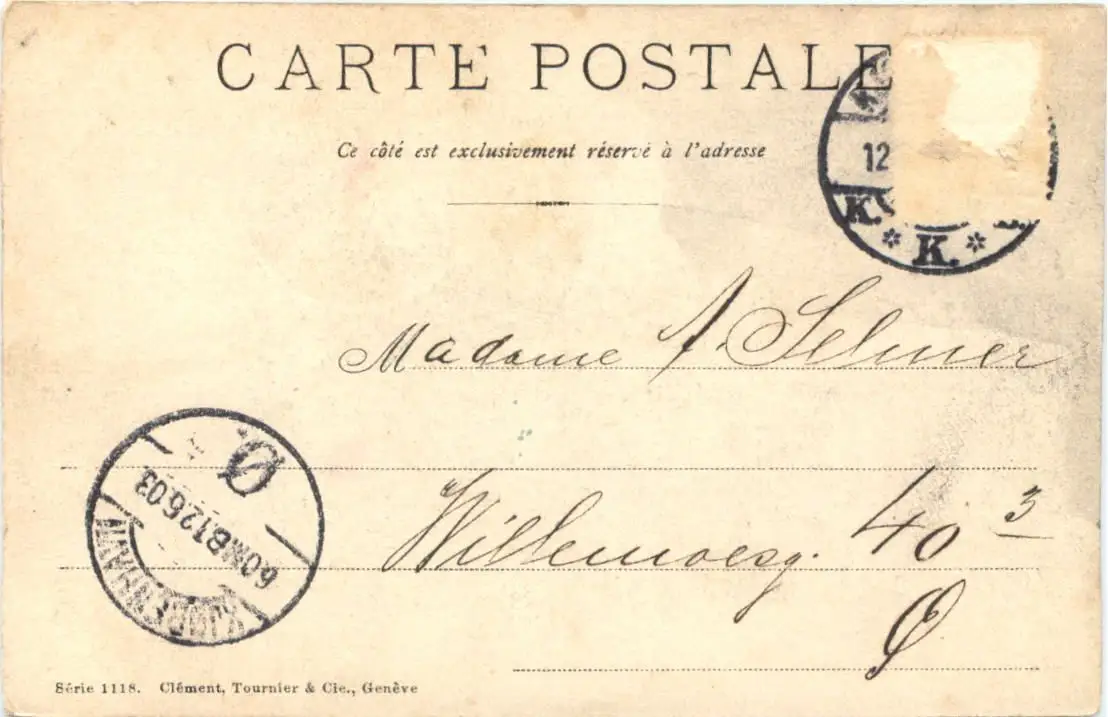 CARTE POSTALE
Ce côté est exclusivement réservé à l'adresse
12
K.
* K. *
Madame A. Selmer
Willemoesg. 40 3
Ø
Ø
6.OMB. 12.6.03
KJØBENHAVN
Série 1118. Clément, Tournier & Cie., Genève